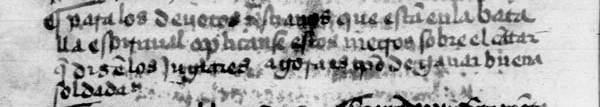 para los devotos xp̄ianos que estā en la bata
lla espiritual aplicanse estos metros sobre el cātar
q̄ dizē los juglares agora es tpō de ganar buena
soldada